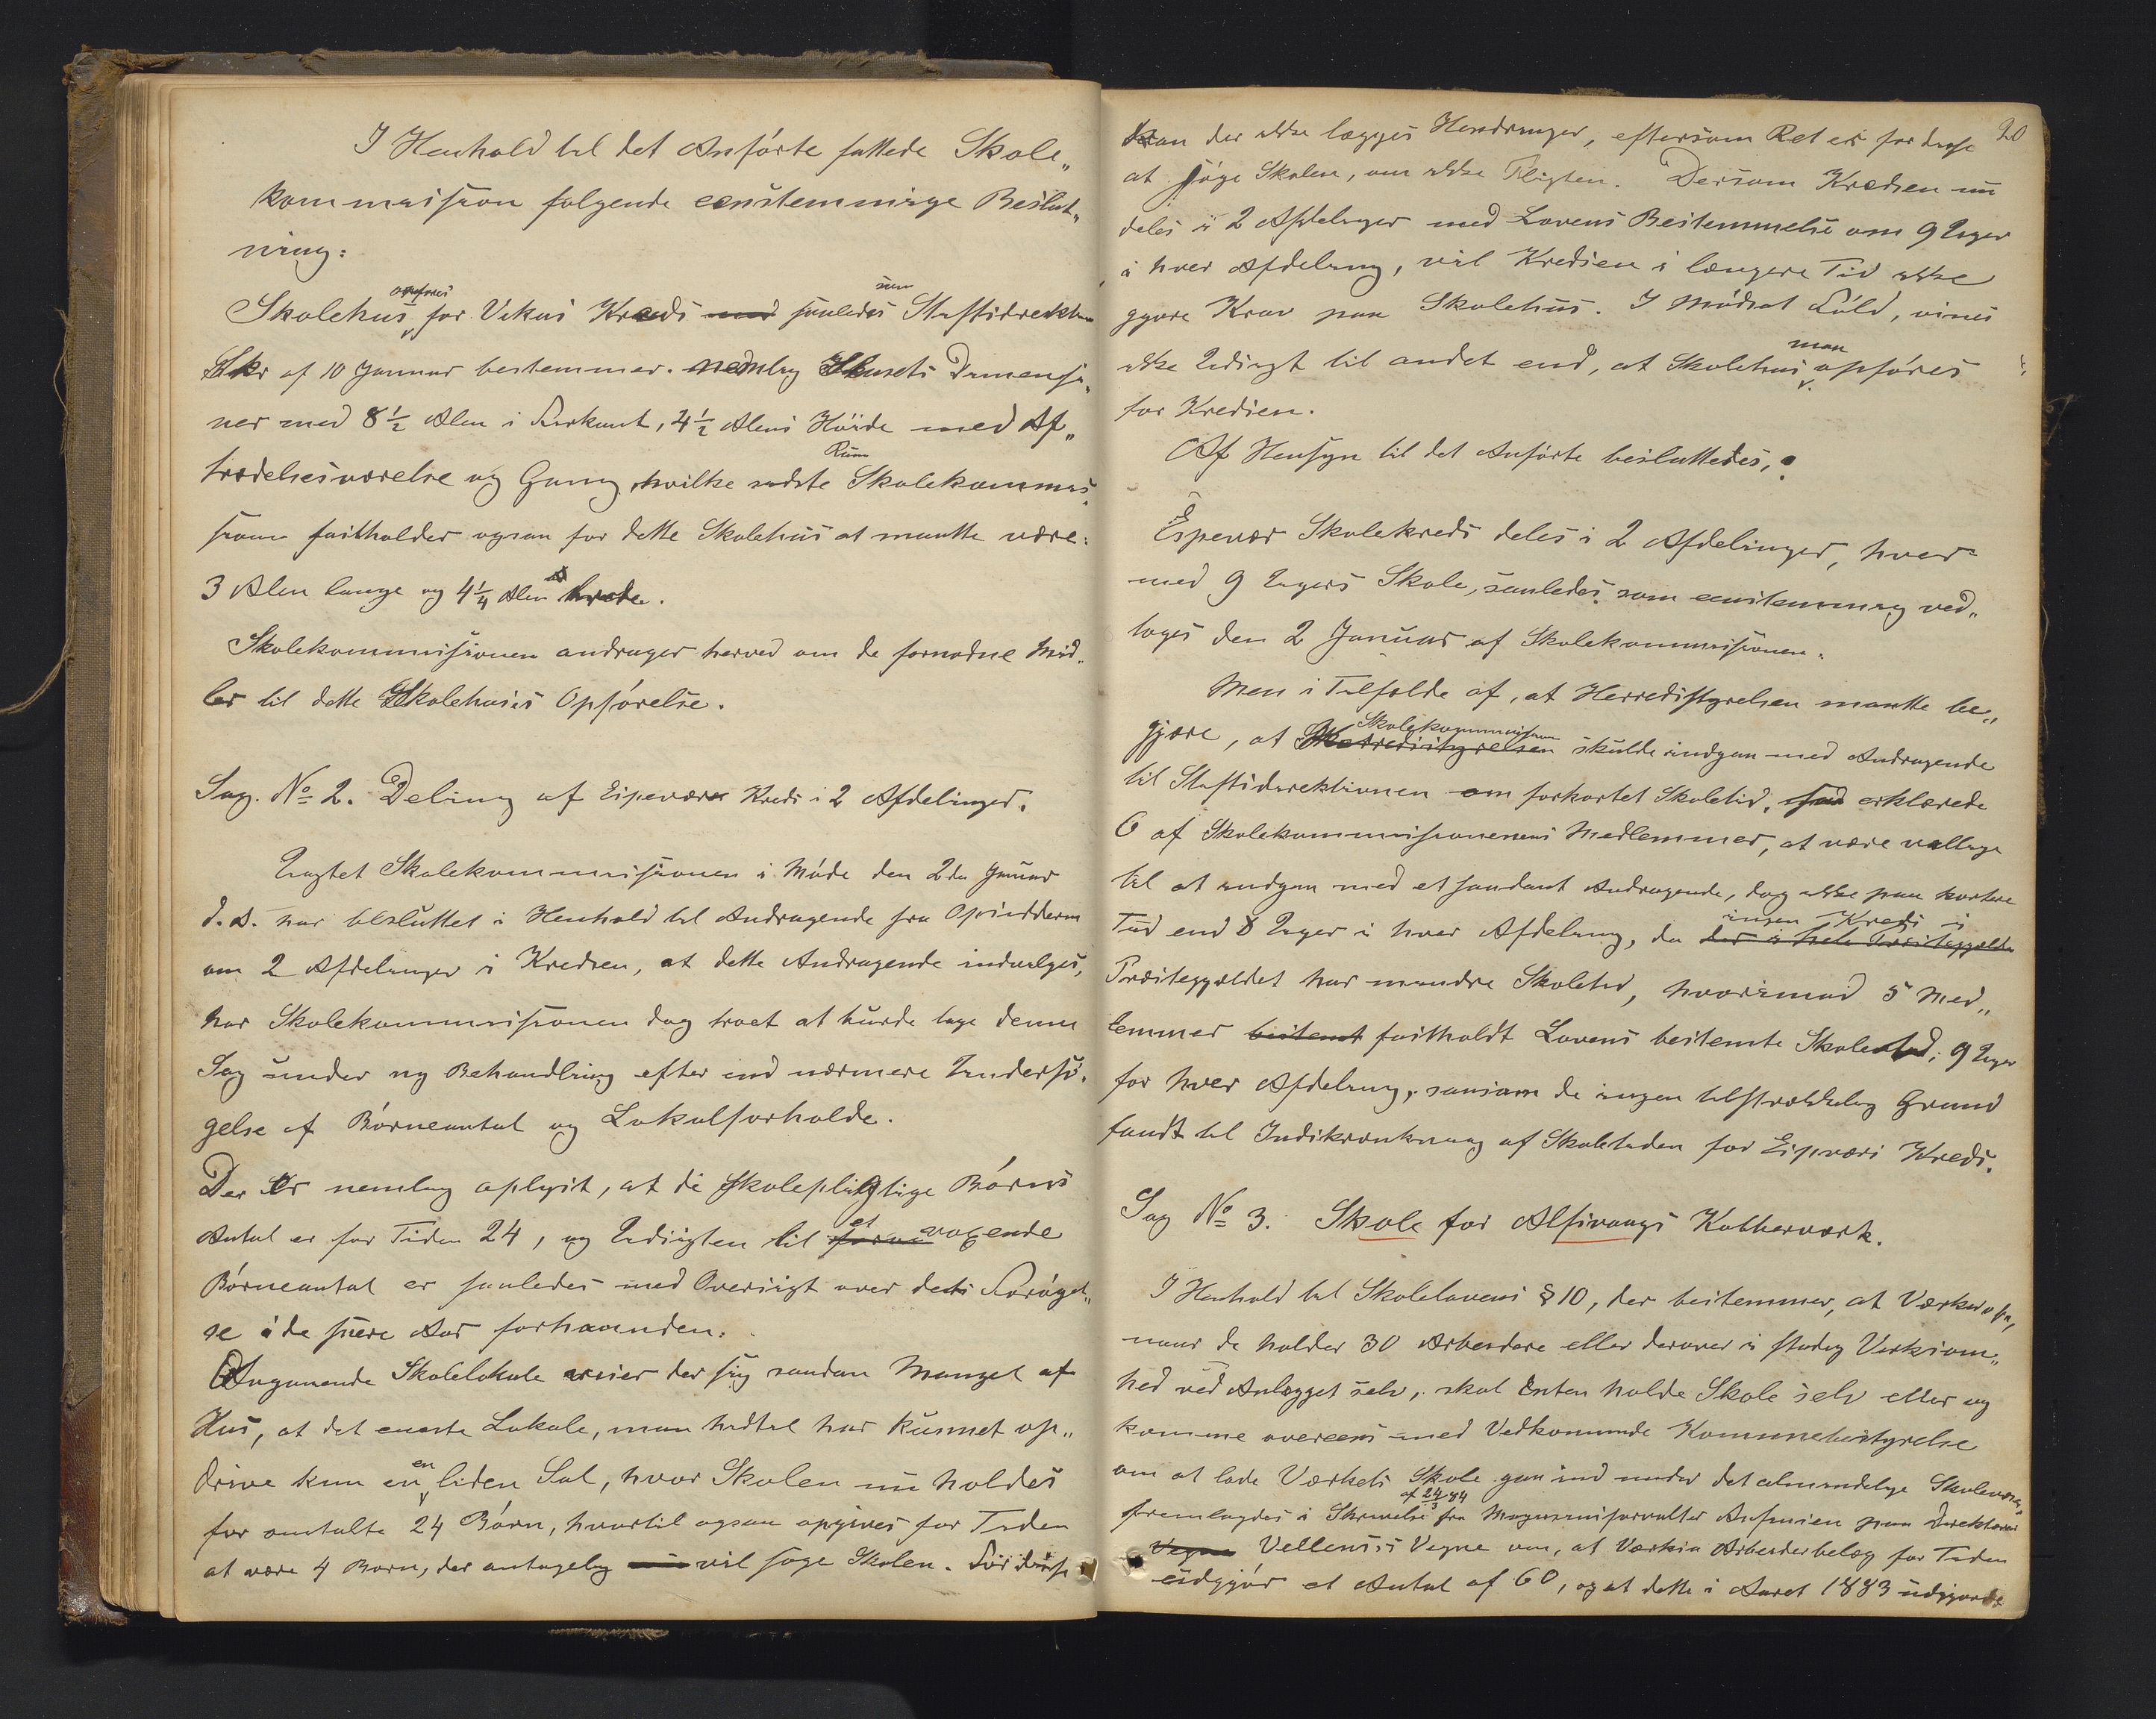 I Henhold til det Anførte fattede Skole„
kommission følgende eenstemmige Beslut„
ning:
Skolehus opføres for Vikus Kreds saaledes som Stiftsdirektion
Skr af 10 Januar bestemmer. nemlig Husets Dimensjo„
ner med 8½ Alen i Firkant, 4½ Alens Høide med Af„
trædelsesværelse og Gang, hvilke sidste Rum Skolekommis„
sionen fastholder ogsaa for dette Skolehus at maatte være:
3 Alen lange og 4¼ Alen brede.
Skolekommissionen andrager herved om de fornødne Mid„
ler til dette Skolehuses Opførelse.
Sag. No 2. Deling af Espevær Kreds i 2 Afdelinger.
Uagtet Skolekommissionen i Møde den 2den Januar
d. A. har besluttet i Henhold til Andragende fra Opsidderne
om 2 Afdelinger i Kredsen, at dette Andragende indvilges,
har Skolekommissionen dog troet at burde tage denne
Sag under ny Behandling efter end nærmere Undersø„
gelse af Børneantal og Lokalforholde.
Der er nemlig oplyst, at de skolepligtige Børns
Antal er for Tiden 24, og Udsigten til et voxende
Børneantal er saaledes med Oversigt over dets Forøgel„
se i de fire Aar forhaanden.
Angaaende Skolelokale viser der sig saadan Mangel af
Hus, at det eneste Lokale, man hidtil har kunnet op„
drive kun en liden Sal, hvor Skolen nu holdes
for omtalte 24 Børn, hvortil ogsaa opgives for Tiden
at være 4 Børn, der antagelig vil søge Skolen. For disse
20
kan der ikke lægges Hindringer, eftersom Ret er for disse
at søge Skolen, om ikke Pligten. Dersom Kredsen nu
deles i 2 Afdelinger med Lovens Bestemmelse om 9 Uger
i hver Afdeling, vil Kredsen i længere Tid ikke
gjøre Krav paa Skolehus. I modsat Fald, vines
ikke Udsigt til andet end, at Skolehus man opføres
for Kredsen.
Af Hensyn til det Anførte besluttedes,
Espevær Skolekreds deles i 2 Afdelinger, hver
med 9 Ugers Skole, saaledes som eenstemmig ved„
toges den 2 Januar af Skolekommissionen.
Men i Tilfælde af, at Herredsstyrelsen maatte be„
gjære, at Skolekommissionen skulde indgaa med Andragende
til Stiftsdirektionen om forkortet Skoletid, erklærede
6 af Skolekommissionens Medlemmer, at være villige
til at indgaa med et saadant Andragende, dog ikke paa kortere
Tid end 8 Uger i hver Afdeling, da ingen Kreds i
Præstegjældet har mindre Skoletid, hvorimod 5 Med„
lemmer fastholdt Lovens bestemte Skoletid; 9 Uger
for hver Afdeling, saasom de ingen tilstrækkelig Grund
fandt til Indskrænkning af Skoletiden for Espværs Kreds.
Sag No 3. Skole for Alsvaags Kobberværk.
I Henhold til Skolelovens § 10, der bestemmer, at Værker o s v,
naar de holder 30 Arbeidere eller derover i stadig Virksom„
hed ved Anlægget selv, skal Enten holde Skole selv eller og
komme overeens med Vedkommende Kommunebestyrelse
om at lade Værkets Skole gaa ind under det almindelige Skolevæsen,
fremlagdes i Skrivelse af 24/3 84 fra Magasinforvalter Asfusien paa Direktører
Vellenss Vegne om, at Værkets Arbeiderbelæg for Tiden
udgjør et Antal af 60, og at dette i Aaret 1883 udgjorde